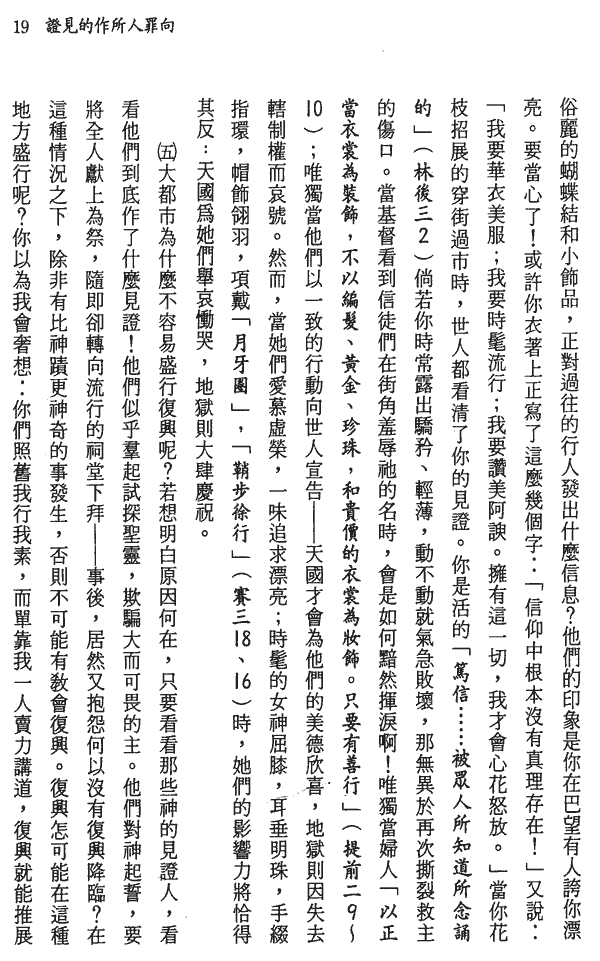 19 向罪人所作的見證
俗麗的蝴蝶結和小飾品，正對過往的行人發出什麼信息？他們的印象是你在巴望有人誇你漂
亮。要當心了！或許你衣著上正寫了這麼幾個字：「信仰中根本沒有真理存在！」又說：
「我要華衣美服；我要時髦流行；我要讚美阿諛。擁有這一切，我才會心花怒放。」當你花
枝招展的穿街過市時，世人都看清了你的見證。你是活的「薦信……被眾人所知道所念誦
的」（林後三2）倘若你時常露出驕矜、輕薄，動不動就氣急敗壞，那無異於再次撕裂救主
的傷口。當基督看到信徒們在街角羞辱祂的名時，會是如何黯然揮淚啊！唯獨當婦人「以正
當衣裳為裝飾，不以編髮、黃金、珍珠，和貴價的衣裳為妝飾。只要有善行」（提前二9～
10）；唯獨當他們以一致的行動向世人宣告——天國才會為他們的美德欣喜，地獄則因失去
轄制權而哀號。然而，當她們愛慕虛榮，一味追求漂亮；時髦的女神屈膝，耳垂明珠，手綴
指環，帽飾翎羽，項戴「月牙圈」，「鞘步徐行」（賽三18、16）時，她們的影響力將恰得
其反：天國爲她們舉哀慟哭，地獄則大肆慶祝。
㈤大都市為什麼不容易盛行復興呢？若想明白原因何在，只要看看那些神的見證人，看
看他們到底作了什麼見證！他們似乎羣起試探聖靈，欺騙大而可畏的主。他們對神起誓，要
將全人獻上為祭，隨即卻轉向流行的祠堂下拜——事後，居然又抱怨何以沒有復興降臨？在
這種情況之下，除非有比神蹟更神奇的事發生，否則不可能有教會復興。復興怎可能在這種
地方盛行呢？你以為我會奢想：你們照舊我行我素，而單靠我一人賣力講道，復興就能推展